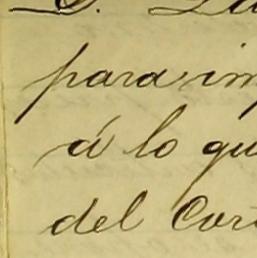 D.
para im
á lo qu
del Cor